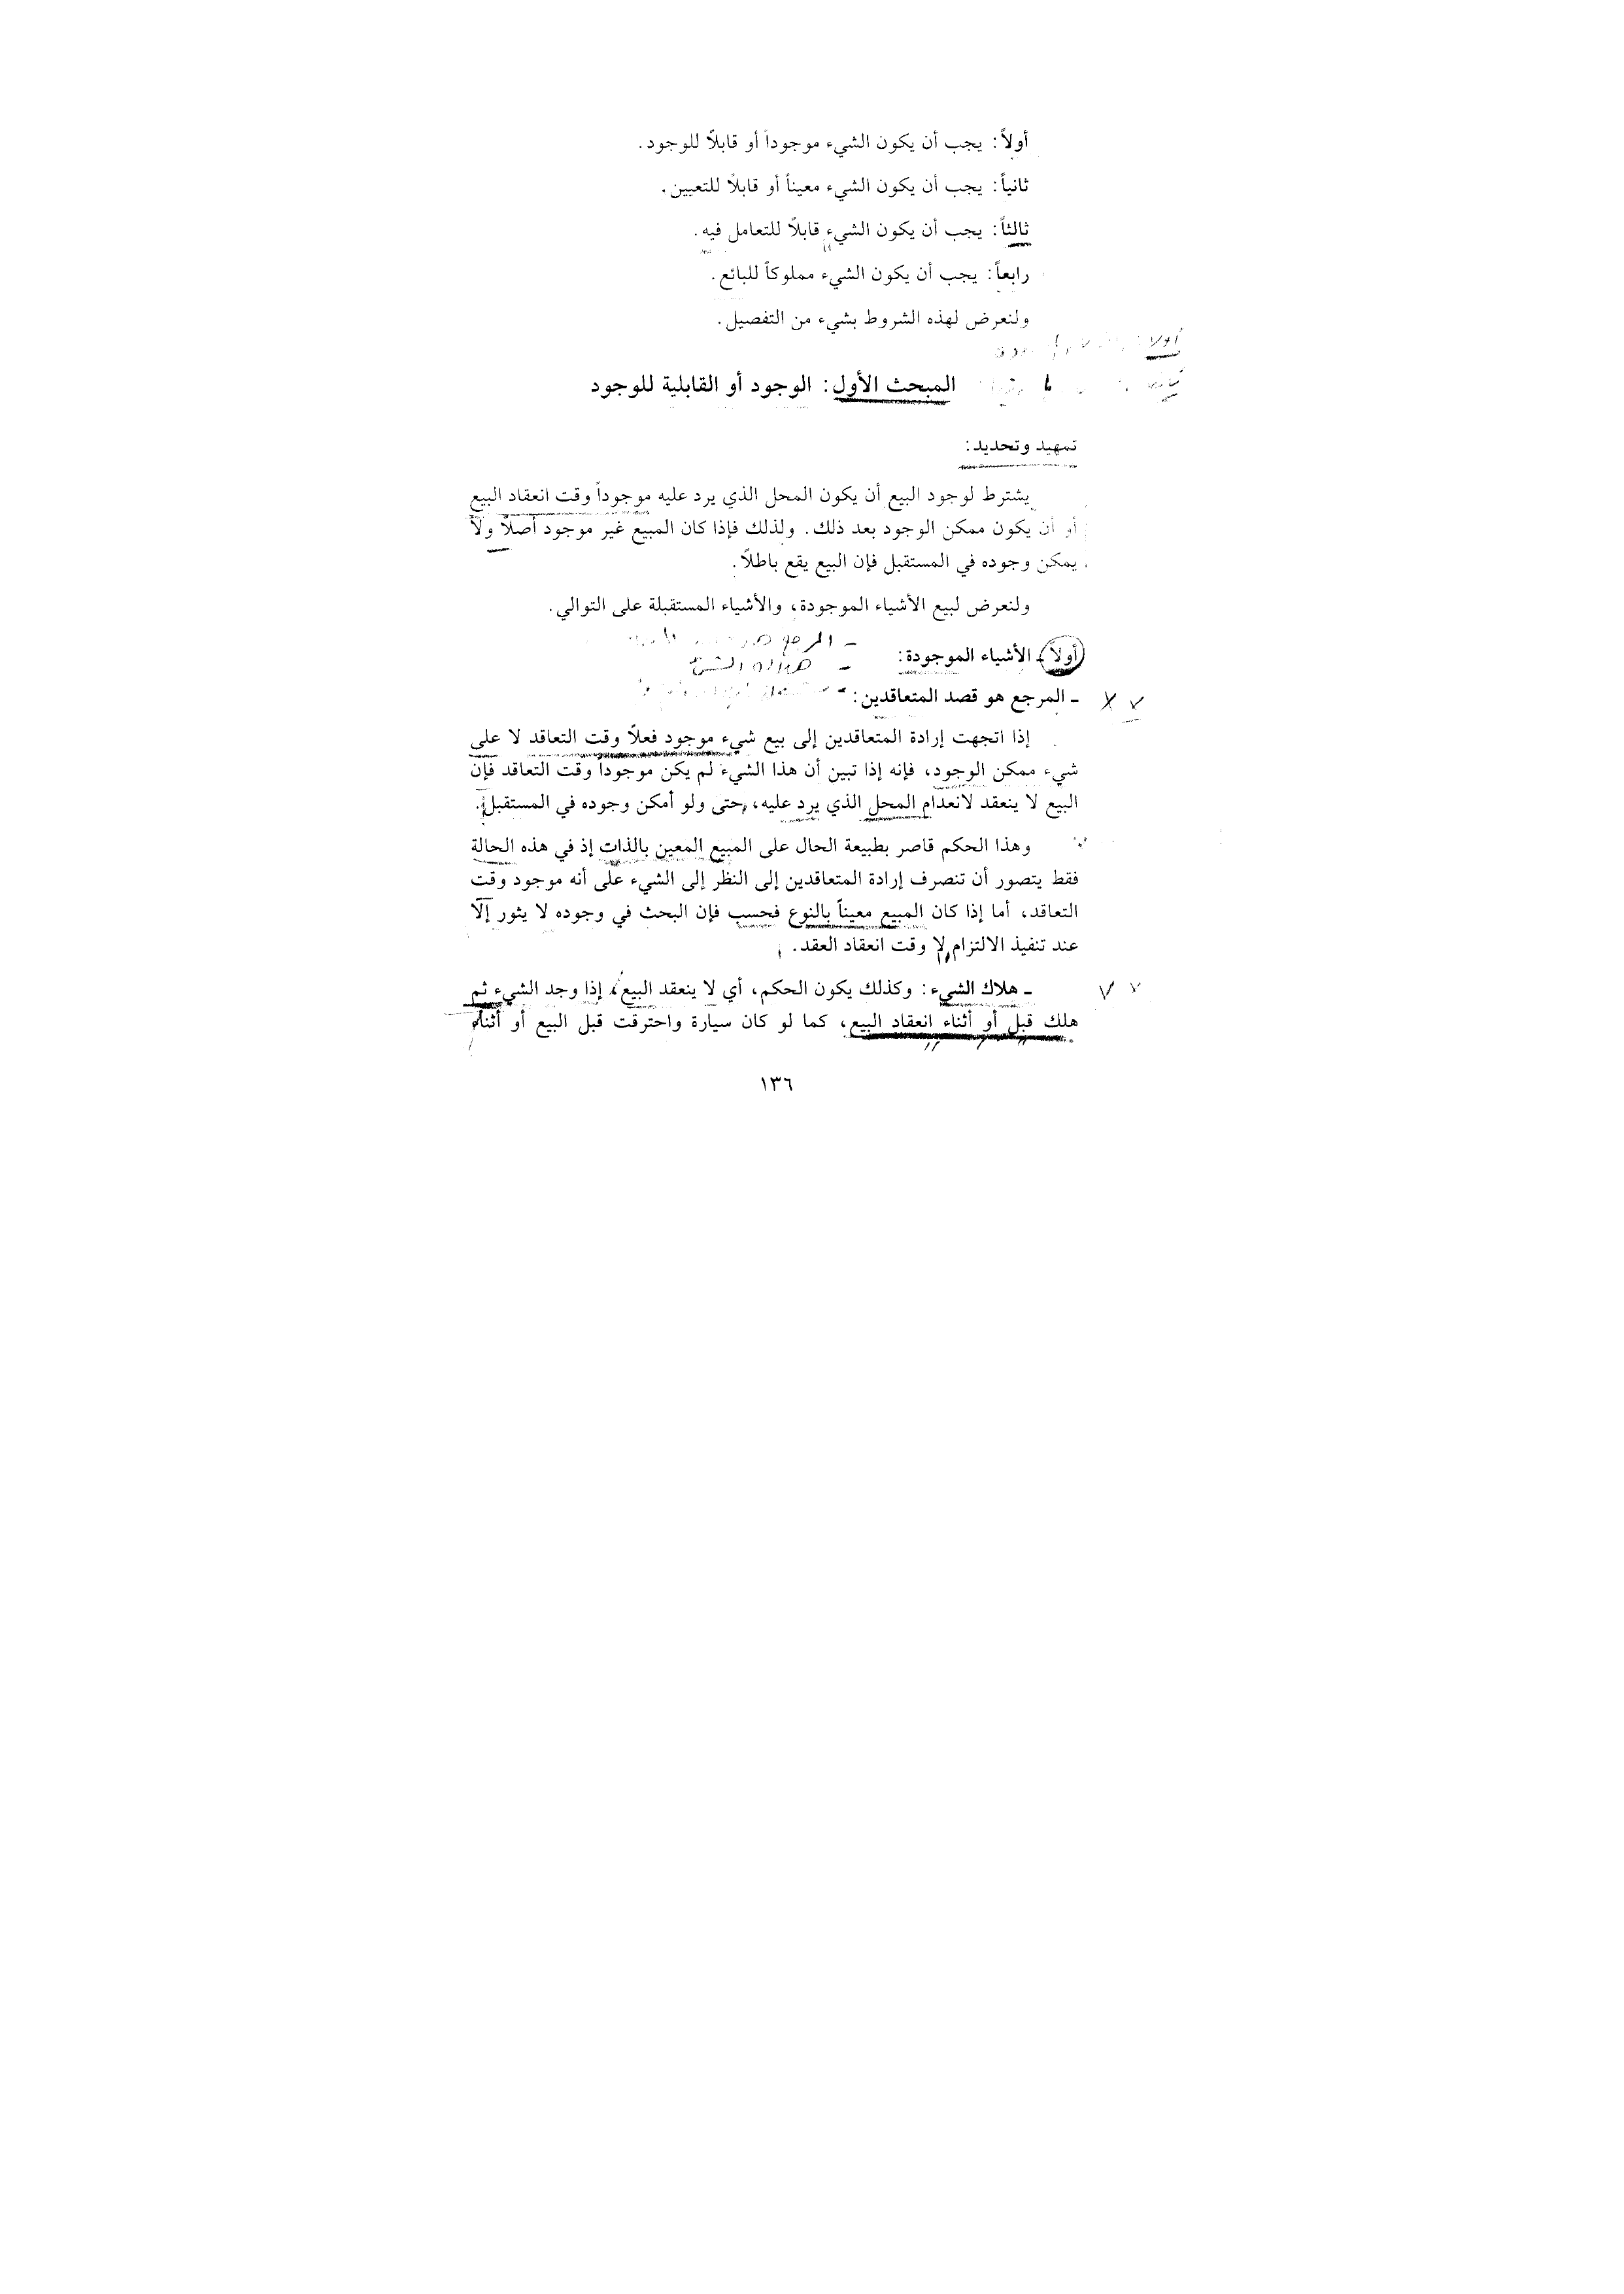 أولاً: يجب أن يكون الشيء موجوداً أو قابلاً للوجود.
ثانياً: يجب أن يكون الشيء معيناً أو قابلاً للتعيين.
ثالثاً: يجب أن يكون الشيء قابلاً للتعامل فيه.
رابعاً: يجب أن يكون الشيء مملوكاً للبائع.
ولنعرض لهذه الشروط بشيء من التفصيل.
أولا
المبحث الأول: الوجود أو القابلية للوجود
تمهيد وتحديد:
يشترط لوجود البيع أن يكون المحل الذي يرد عليه موجوداً وقت انعقاد البيع
أو أن يكون ممكن الوجود بعد ذلك. ولذلك فإذا كان المبيع غير موجود أصلاً ولا
يمكن وجوده في المستقبل فإن البيع يقع باطلاً.
ولنعرض لبيع الأشياء الموجودة، والأشياء المستقبلة على التوالي.
- المرجع هو
أولاً - الأشياء الموجودة:
- هلاك الشيء
- المرجع هو قصد المتعاقدين:
إذا اتجهت إرادة المتعاقدين إلى بيع شيء موجود فعلاً وقت التعاقد لا على
شيء ممكن الوجود، فإنه إذا تبين أن هذا الشيء لم يكن موجوداً وقت التعاقد فإن
البيع لا ينعقد لانعدام المحل الذي يرد عليه، حتى ولو أمكن وجوده في المستقبل.
وهذا الحكم قاصر بطبيعة الحال على المبيع المعين بالذات إذ في هذه الحالة
فقط يتصور أن تنصرف إرادة المتعاقدين إلى النظر إلى الشيء على أنه موجود وقت
التعاقد، أما إذا كان المبيع معيناً بالنوع فحسب فإن البحث في وجوده لا يثور إلّا
عند تنفيذ الالتزام لا وقت انعقاد العقد.
- هلاك الشيء: وكذلك يكون الحكم، أي لا ينعقد البيع، إذا وجد الشيء ثم
هلك قبل أو أثناء انعقاد البيع، كما لو كان سيارة واحترقت قبل البيع أو أثناء
١٣٦